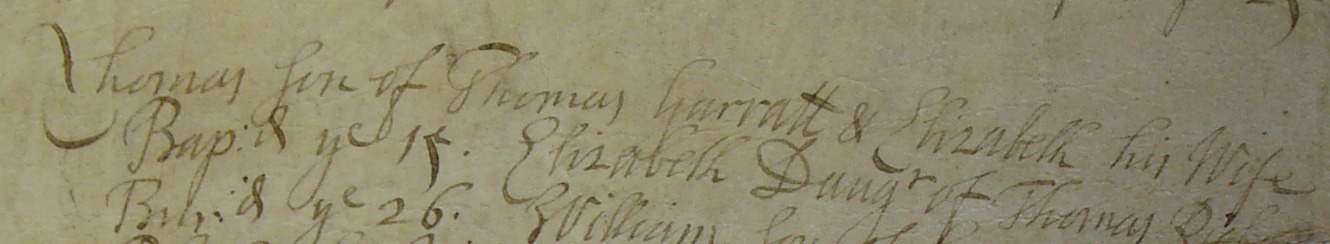 Thomas son of Thomas Garratt & Elizabeth his Wife
Bap:d ye 15. Elizabeth Daugr of Thomas
Bur:d ye 26. William son of